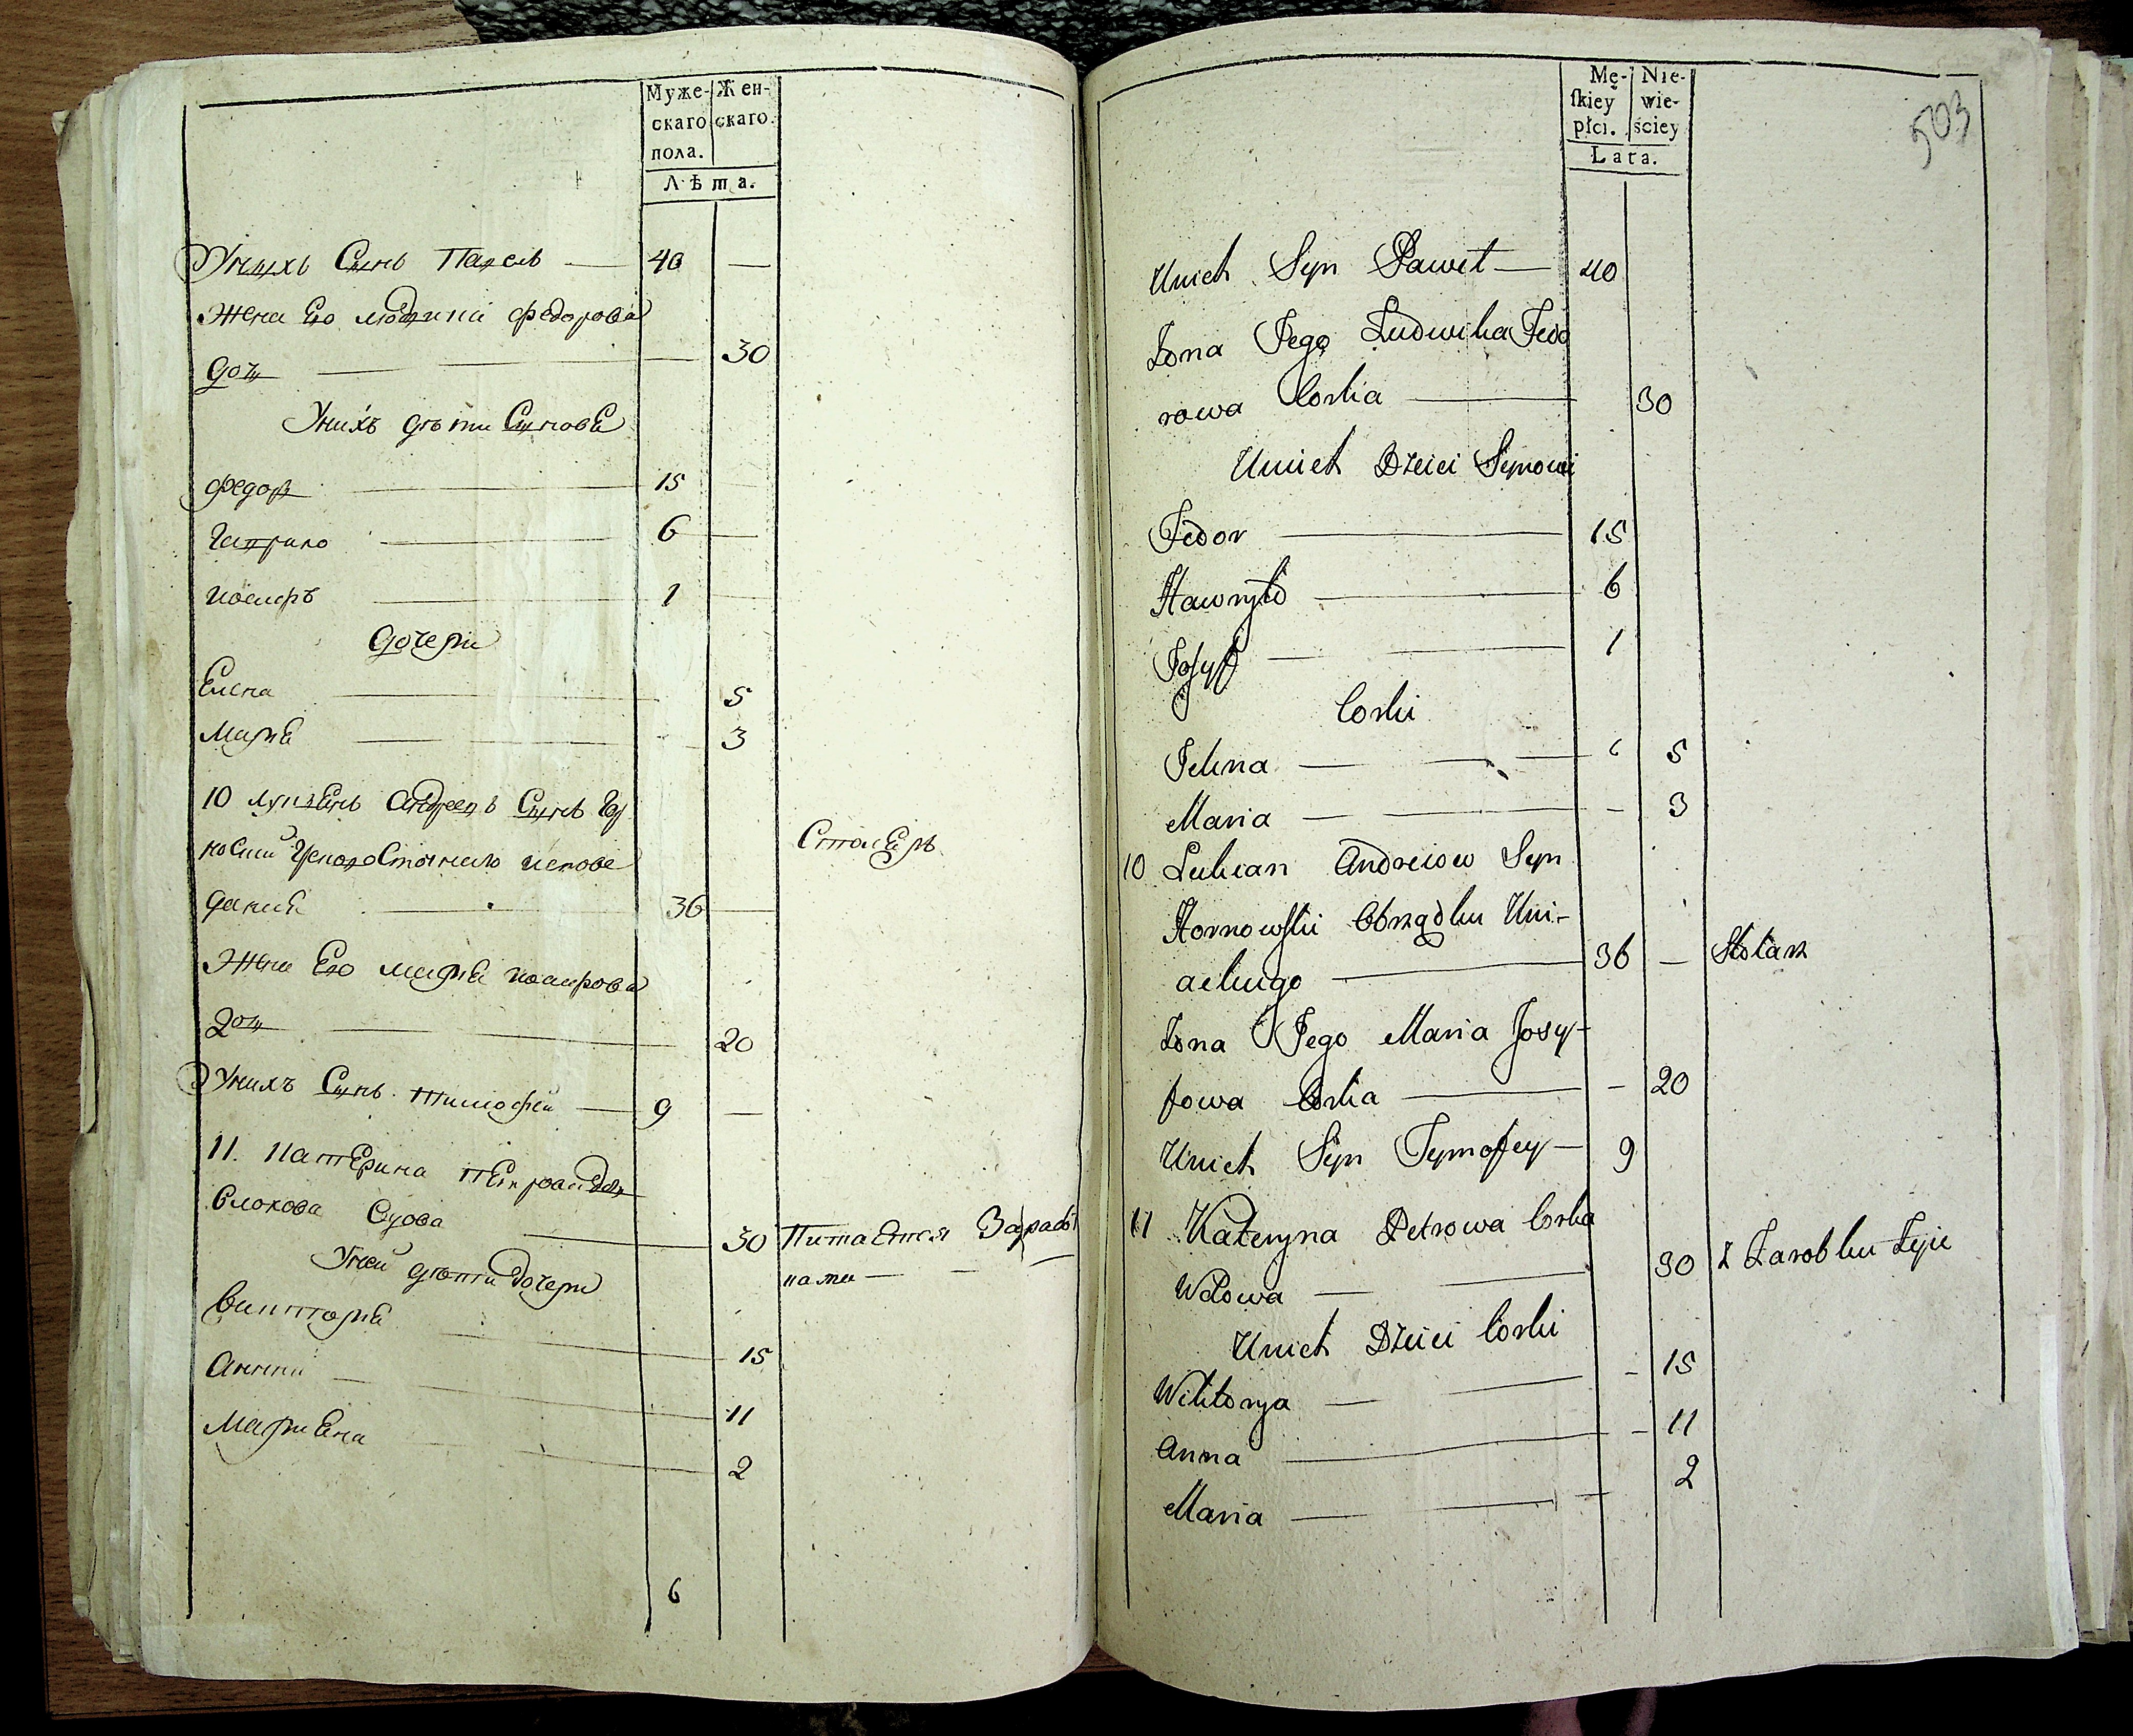 Муже-
скаго
пола.
Жен-
скаго.
Лѣта.
Унихъ Сынъ Павелъ — 40 —
Жена Его Людвика Федорова
дочь — 30
Унихъ дѣти Сынове
Федоръ — 15
Гаврило — 6 —
Иосифъ — 1
дочери
Елена — 5
Марiя — 3
10 Лукiянъ Андреевъ Сынъ Гор
новскiй Исповѣ Столяръ
данiя — 36 —
Жена Его Марiя Иосифова
дочь — 20
Унихъ Сынъ Тимофей — 9 —
11. Катерина Петрова дочь
вдова — 30 Питается Зарабо
Уней дѣти дочери
ками —
Викторiя — 15
Анна — 11
Марiена — 2
6
503
Mę-
ſkiey
płci.
Nie-
wie-
ściey
Lata.
Unich Syn Paweł — 40
Zona Jego Ludwika Fedo
rowa Corka — 30
Unich Dzieci Synowi
Fedor — 15
Hawryło — 6
Josyf — 1
Corki
Jelena — 5
Maria — 3
10 Lukian Andreiow Syn
Hornowſki Obrządku Uni-
ackiego — 36 — Stolarz
Zona Jego Maria Josy-
fowa Corka — 20
Unich Syn Tymofey — 9
11 Kateryna Petrowa Corka
Wdowa — 30 Z Zarobku Zyie
Unich Dzieci Corki
Wiktorya — 15
Anna — 11
Maria — 2